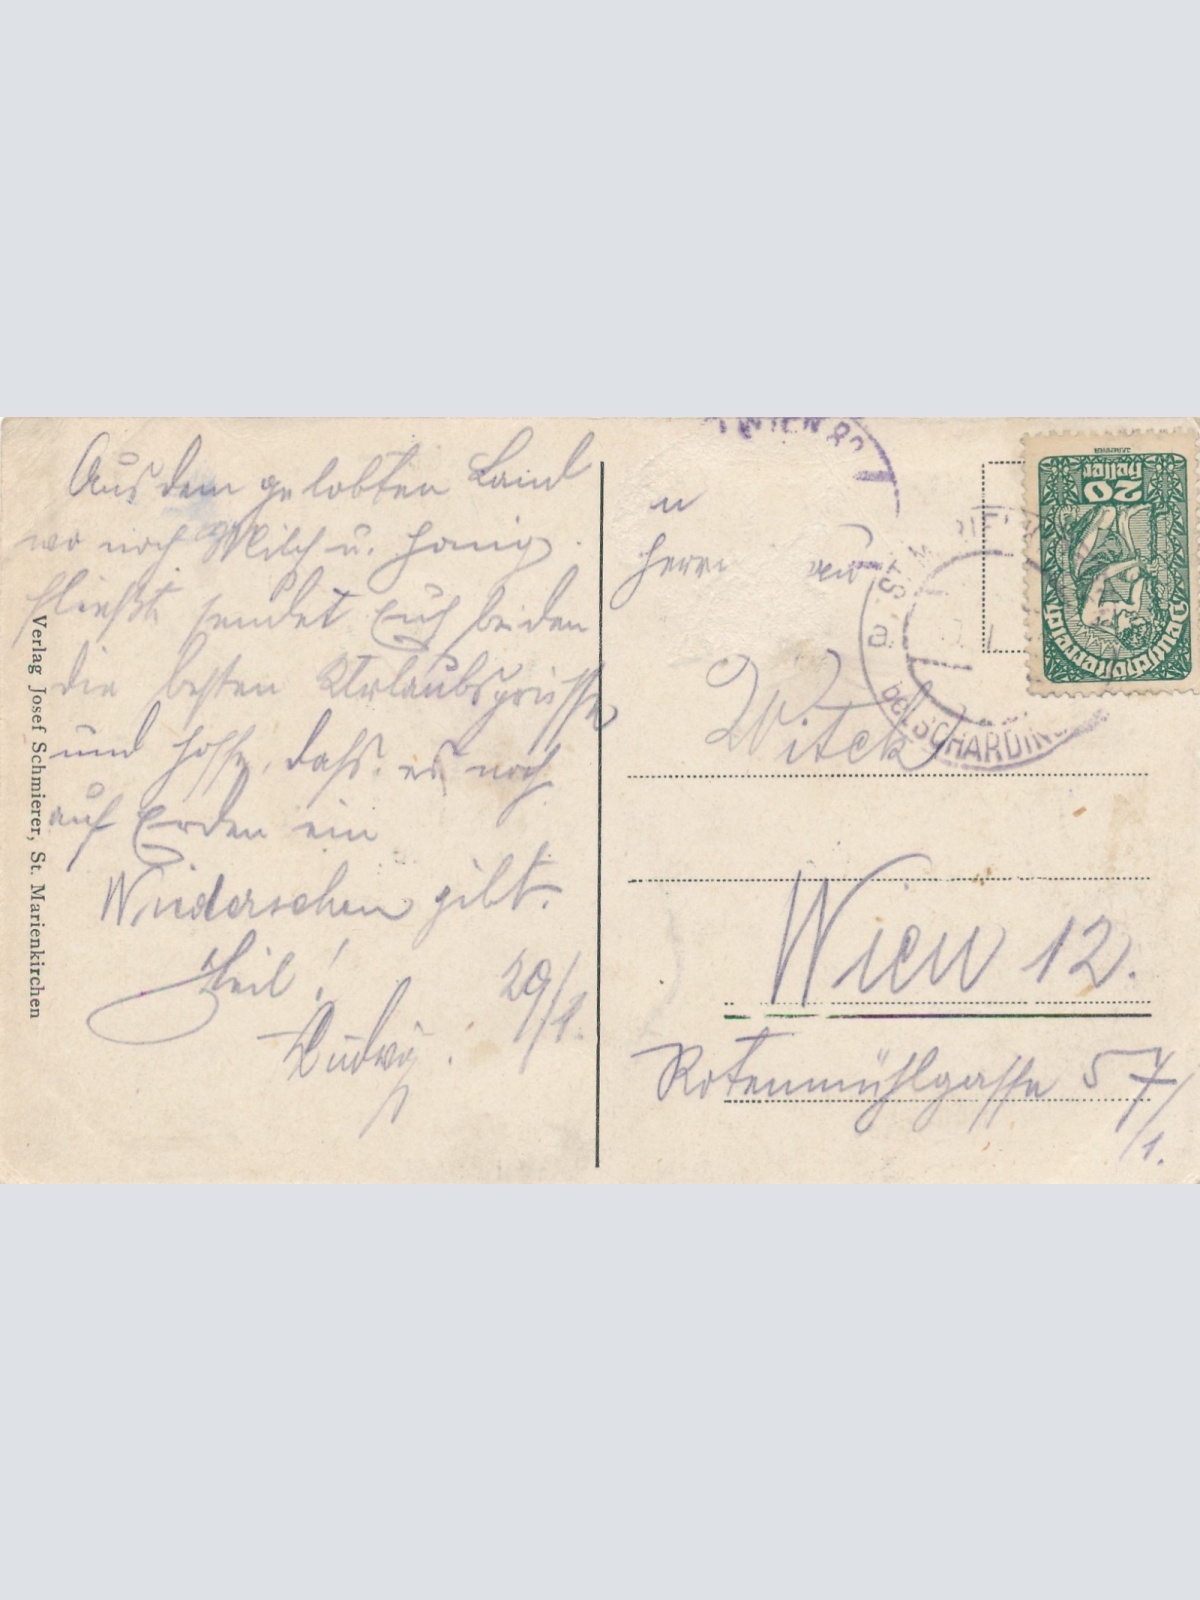 Aus dem gelobten Land
wo noch Milch u. Honig
fließt sendet Euch beiden
die besten Urlaubsgrüsse
und hoffe, dafs es noch
auf Erden ein
Wiedersehen gibt.
Heil! 29/1.
Ludwig.
Verlag Josef Schmierer, St. Marienkirchen
WIEN 82
u
Herrn
Witek
Wien 12.
Rotenmühlgasse 57/
/1.
ST. MARIENKIRCHEN
a
bei SCHÄRDING
20
Heller
Deutschösterreich